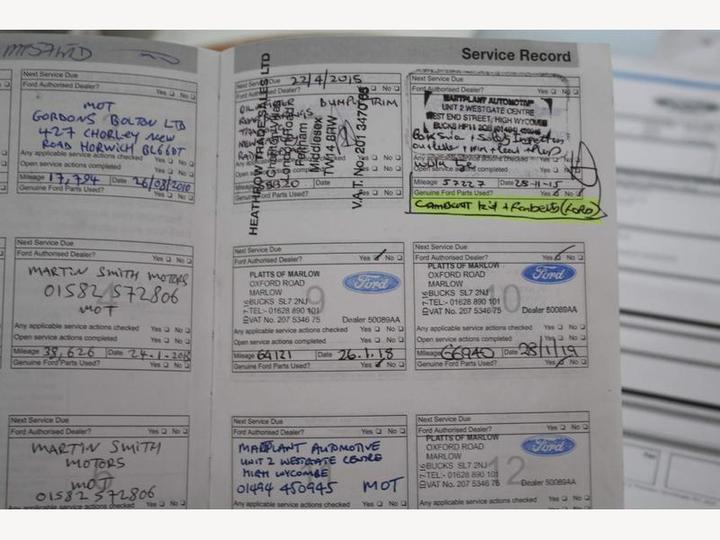 MTS7WTD
Service Record
Next Service Due
Ford Authorised Dealer? Yes No
MOT
GORDONS BOLTON LTD
427 CHORLEY NEW
ROAD HORWICH BL66DT
Any applicable service actions checked Yes No
Open service actions completed Yes No
Mileage 17,794 Date 26/08/2010
Genuine Ford Parts Used? Yes No
Next Service Due 22/4/2015
OIL
BUMPER TRIM
HEATHROW TRADE SALES LTD
London Road
Feltham
Middlesex
TW14 8RW
V.A.T. No. 201 3470
Genuine Ford Parts Used? Yes No
Next Service Due
Ford Authorised Dealer? Yes No
MARTPLANT AUTOMOTIVE
UNIT 2 WESTGATE CENTRE
WEST END STREET, HIGH WYCOMBE
BUCKS HP11 2QB
Mileage 57227 Date 28-11-15
Genuine Ford Parts Used? Yes No
CAMBELT Kit + (FORD)
Next Service Due
Ford Authorised Dealer? Yes No
MARTIN SMITH MOTORS
01582 572806
MOT
Any applicable service actions checked Yes No
Open service actions completed Yes No
Mileage 38,626 Date 24.1.20
Genuine Ford Parts Used? Yes No
Next Service Due
Ford Authorised Dealer? Yes No
9
PLATTS OF MARLOW
OXFORD ROAD
MARLOW
BUCKS SL7 2NJ
TEL:- 01628 890 101
VAT No. 207 5346 75
Ford
Dealer 50089AA
Any applicable service actions checked Yes No
Open service actions completed Yes No
Mileage 64121 Date 26.1.18
Genuine Ford Parts Used? Yes No
Next Service Due
Ford Authorised Dealer? Yes No
10
PLATTS OF MARLOW
OXFORD ROAD
MARLOW
BUCKS SL7 2NJ
TEL:- 01628 890 101
VAT No. 207 5346 75
Ford
Dealer 50089AA
Any applicable service actions checked Yes No
Open service actions completed Yes No
Mileage 66940 Date 28/1/19
Genuine Ford Parts Used? Yes No
Next Service Due
Ford Authorised Dealer? Yes No
MARTIN SMITH
MOTORS
MOT
01582 572806
Next Service Due
Ford Authorised Dealer? Yes No
MARTPLANT AUTOMOTIVE
UNIT 2 WESTGATE CENTRE
HIGH WYCOMBE
01494 450945 MOT
Next Service Due
Ford Authorised Dealer? Yes No
12
PLATTS OF MARLOW
OXFORD ROAD
MARLOW
BUCKS SL7 2NJ
TEL:- 01628 890 101
VAT No. 207 5346 75
Ford
Dealer 50089AA